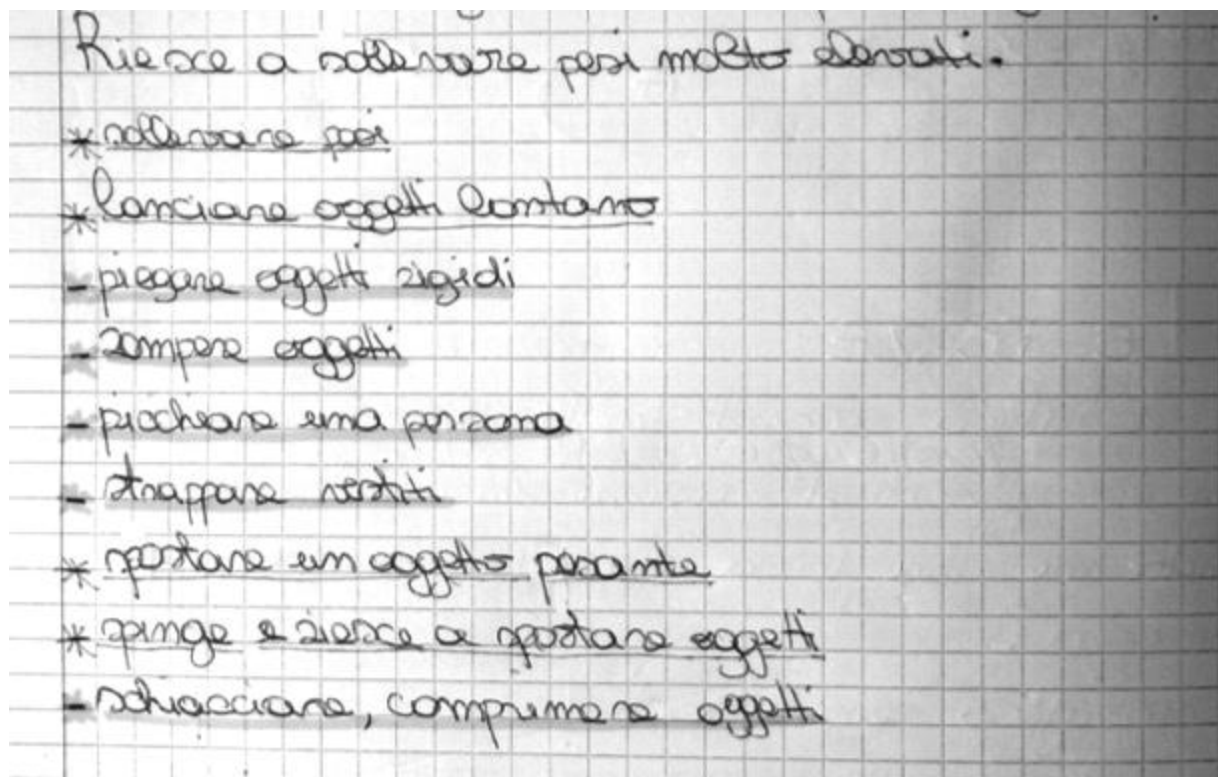 Riesce a sollevare pesi molto elevati.
* sollevare pesi
* lanciare oggetti lontano
- piegare oggetti rigidi
- rompere oggetti
- picchiare una persona
- strappare vestiti
* spostare un oggetto pesante
* spinge e riesce a spostare oggetti
- schiacciare, comprimere oggetti